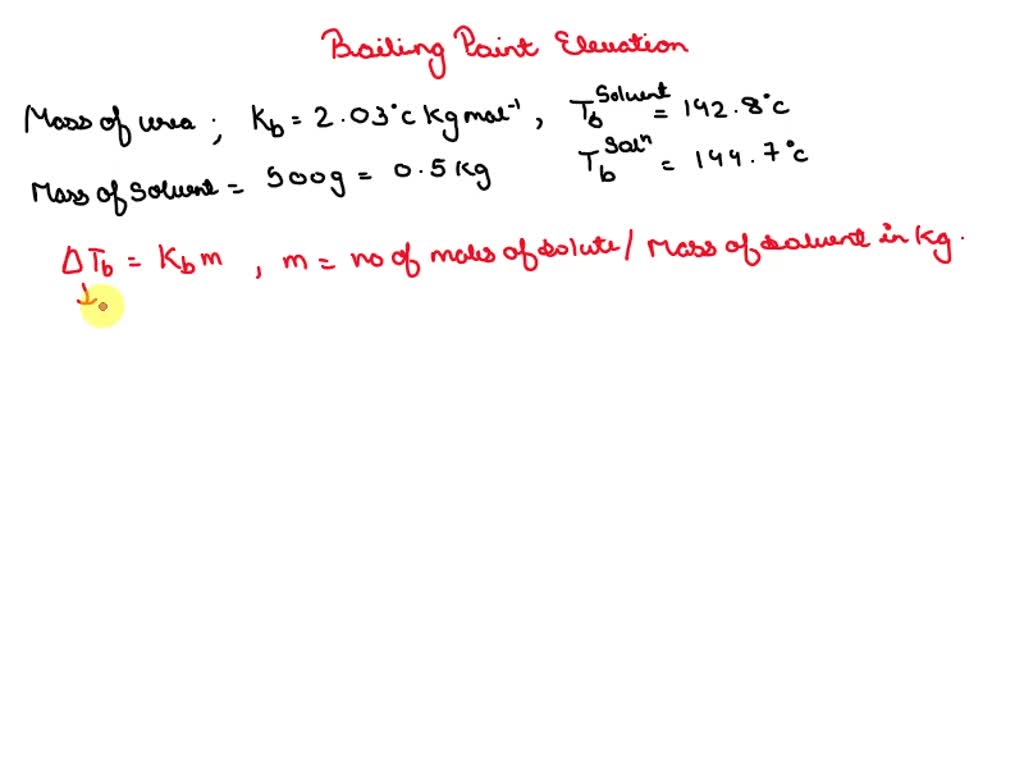 Boiling Point Elevation
Mass of urea ; Kb = 2.03°C Kg mol⁻¹ , Tb^Solvent = 142.8°C
Mass of Solvent = 500g = 0.5 Kg Tb^Solⁿ = 144.7°C
ΔTb = Kb m , m = no of moles of solute / Mass of solvent in Kg.